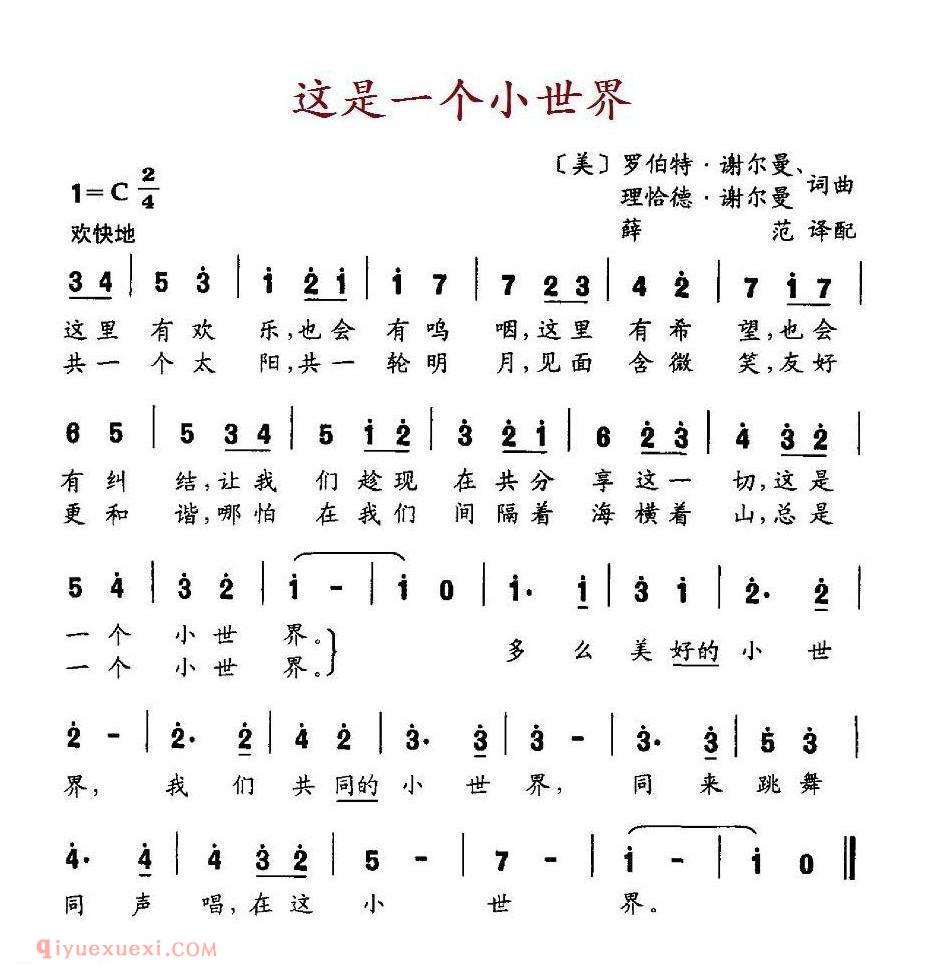 这是一个小世界
〔美〕罗伯特·谢尔曼、
理恰德·谢尔曼 词曲
薛 范 译配
1=C 2/4
欢快地
3 4 | 5 3̇ | 1̇ 2̇ 1̇ | 1̇ 7 | 7 2̇ 3̇ | 4 2̇ | 7 1̇ 7 |
这里 有欢 乐,也会 有呜 咽,这里 有希 望,也会
共一 个太 阳,共一 轮明 月,见面 含微 笑,友好
6 5 | 5 3̇ 4̇ | 5 1̇ 2̇ | 3̇ 2̇ 1̇ | 6 2̇ 3̇ | 4̇ 3̇ 2̇ |
有纠 结,让我 们趁现 在共分 享这一 切,这是
更和 谐,哪怕 在我们 间隔着 海横着 山,总是
5 4̇ | 3̇ 2̇ | 1̇ - | 1̇ 0 | 1̇· 1̇ | 3̇ 1̇ | 2̇· 2̇ |
一个 小世 界。
多么 美好的 小世
一个 小世 界。
2̇ - | 2̇· 2̇ | 4̇ 2̇ | 3̇· 3̇ | 3̇ - | 3̇· 3̇ | 5̇ 3̇ |
界, 我们 共同的 小世 界, 同来 跳舞
4̇· 4̇ | 4̇ 3̇ 2̇ | 5 - | 7 - | 1̇ - | 1̇ 0 ‖
同声 唱,在这 小 世 界。
qiyuexuexi.com(器乐学习)